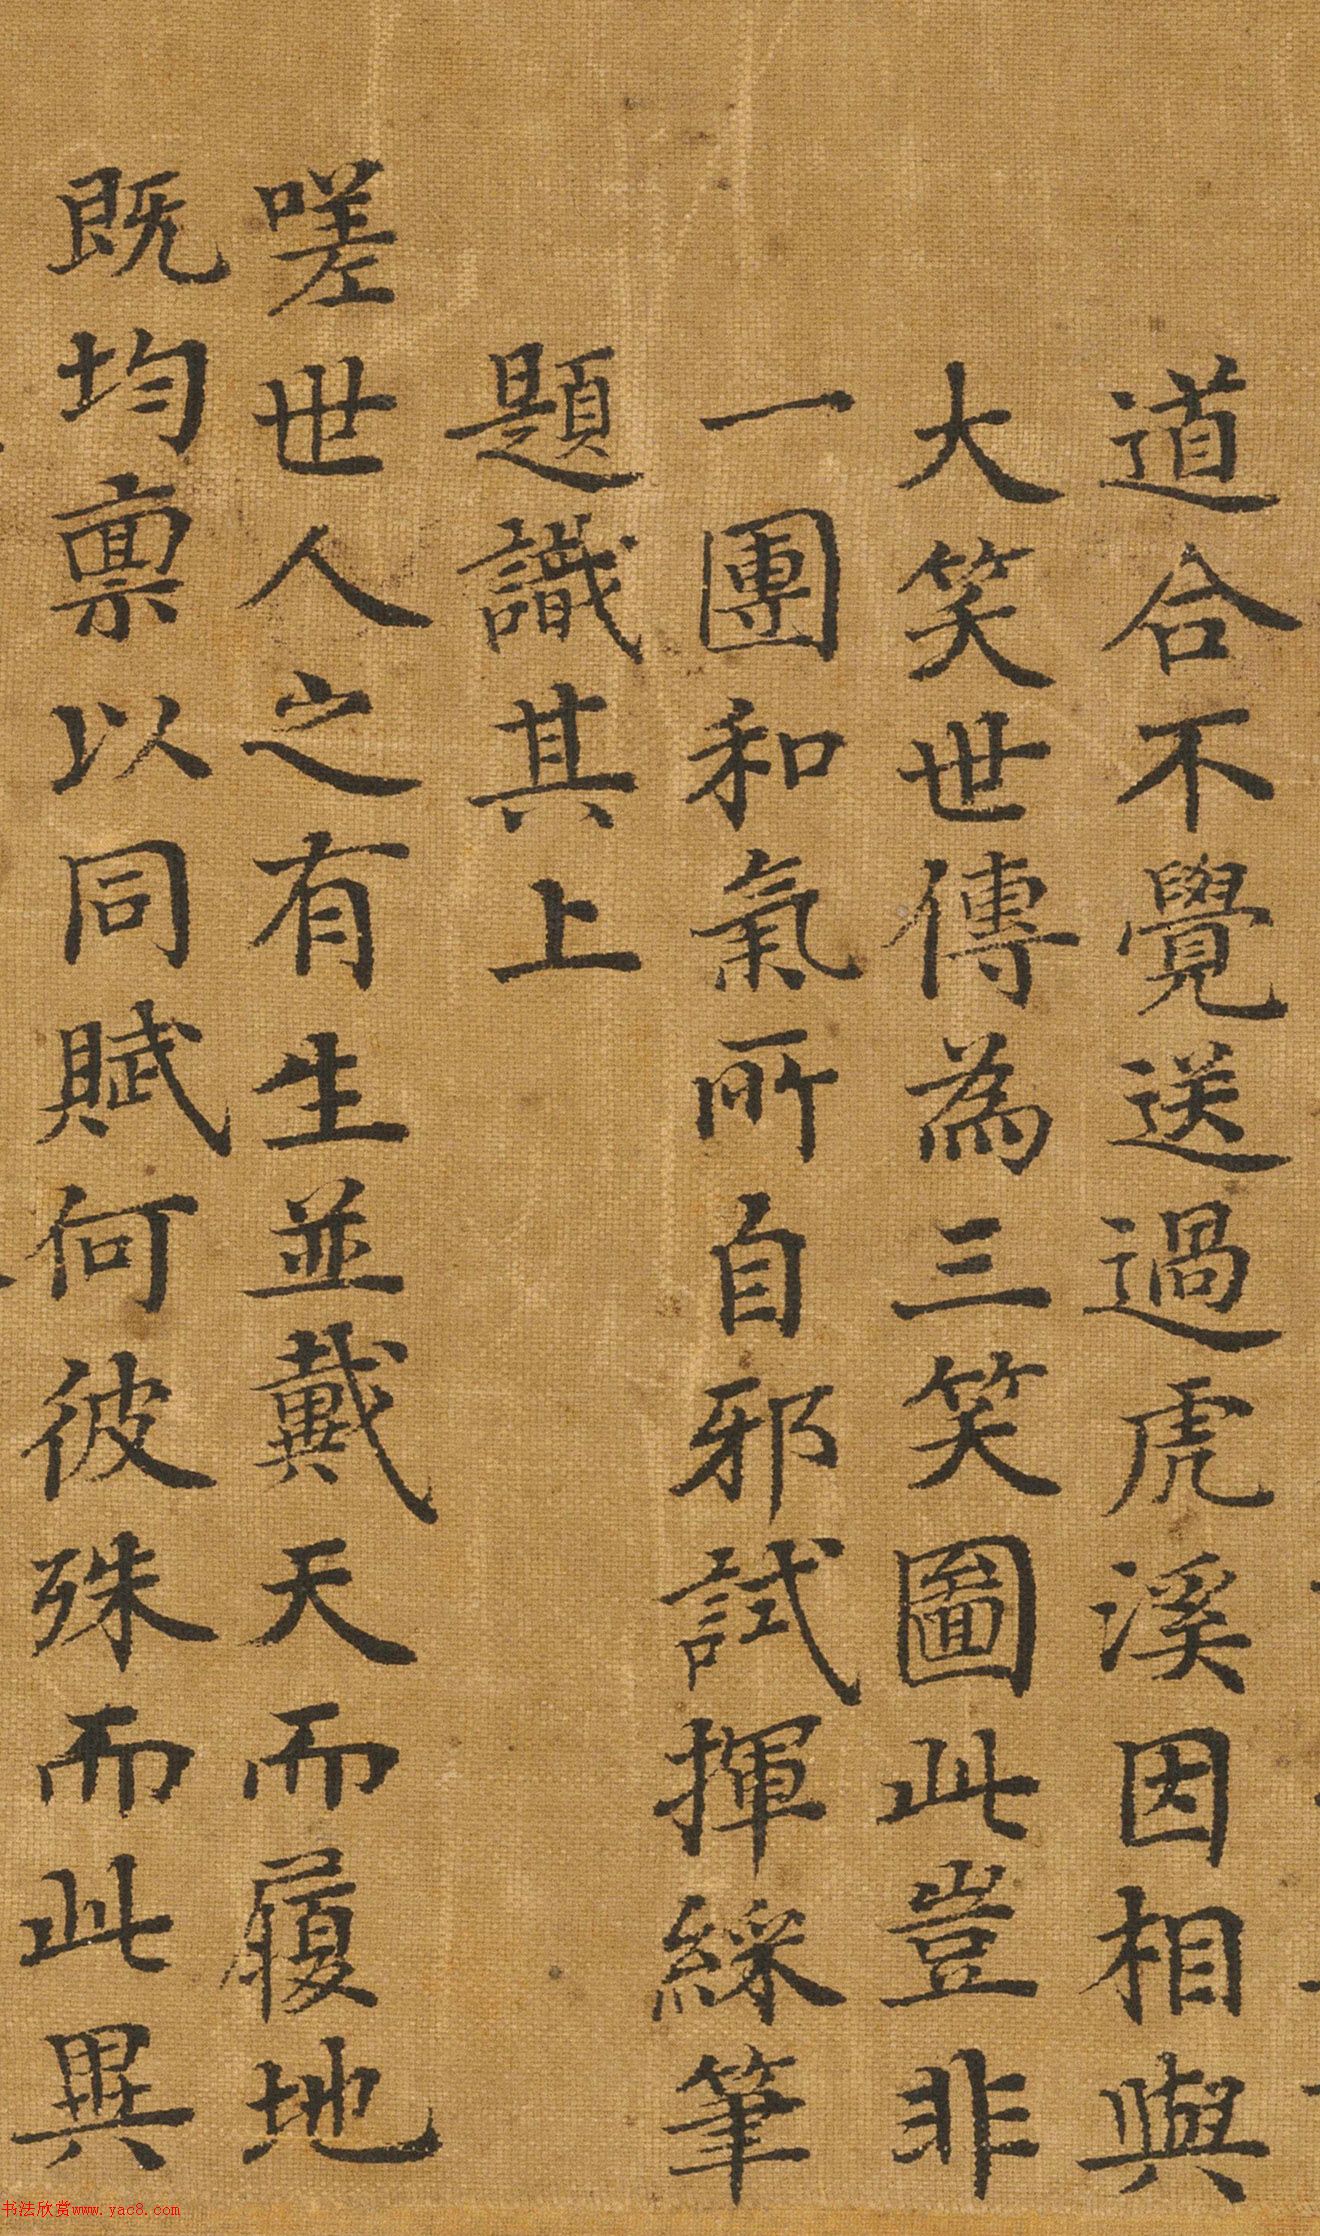 道合不覺送過虎溪因相與
大笑世傳為三笑圖此豈非
一團和氣所自邪試揮綵筆
題識其上
嗟世人之有生並戴天而履地
既均禀以同賦何彼殊而此異
书法欣赏www.yac8.com